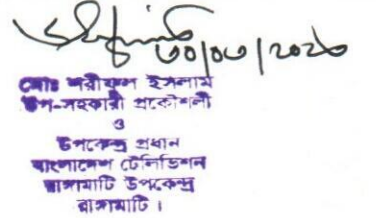 ৩০/০৩/২০২৬
মোঃ শরীফুল ইসলাম
উপ-সহকারী প্রকৌশলী
ও
উপকেন্দ্র প্রধান
বাংলাদেশ টেলিভিশন
রাঙ্গামাটি উপকেন্দ্র
রাঙ্গামাটি।